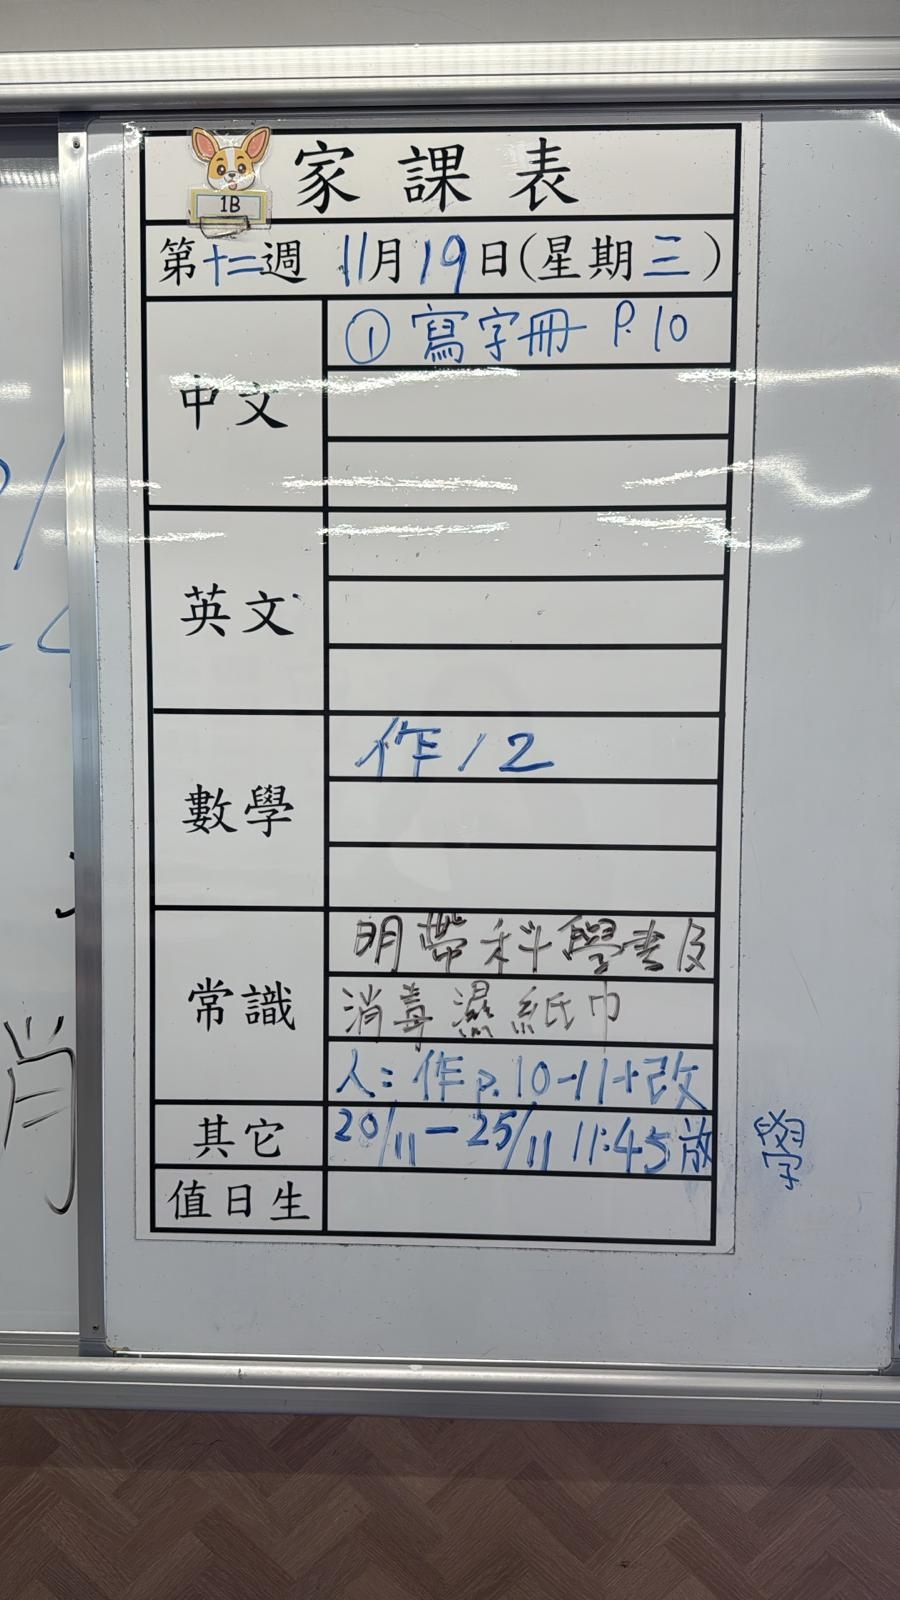 家課表
1B
第十二週 11月19日(星期三)
中文
① 寫字冊 P.10
英文
數學
作12
常識
明帶科學書及
消毒濕紙巾
人：作p.10-11+改
其它
20/11－25/11 11:45放學
值日生